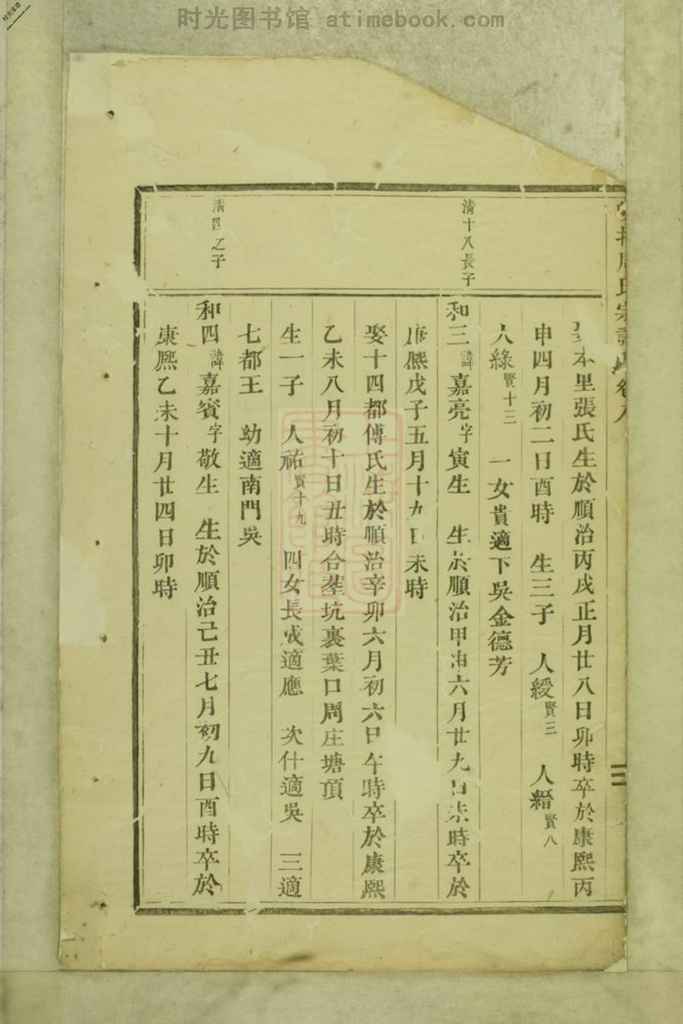 时光图书馆 atimebook.com
本里張氏生於順治丙戌正月廿八日卯時卒於康熙丙
申四月初二日酉時 生三子 人綬賢三 人縉賢八
人緣賢十三 一女貴適下吳金德芳
清十八長子
和三諱嘉亮字寅生 生於順治甲申六月廿九日未時卒於
康熙戊子五月十九日未時
娶十四都傅氏生於順治辛卯六月初六日午時卒於康熙
乙未八月初十日丑時合塟坑裏葉口周庄塘頂
生一子 人祐賢十九 四女長 適應 次什適吳 三適
七都王 幼適南門吳
清四之子
和四諱嘉賓字敬生 生於順治己丑七月初九日酉時卒於
康熙乙未十月廿四日卯時